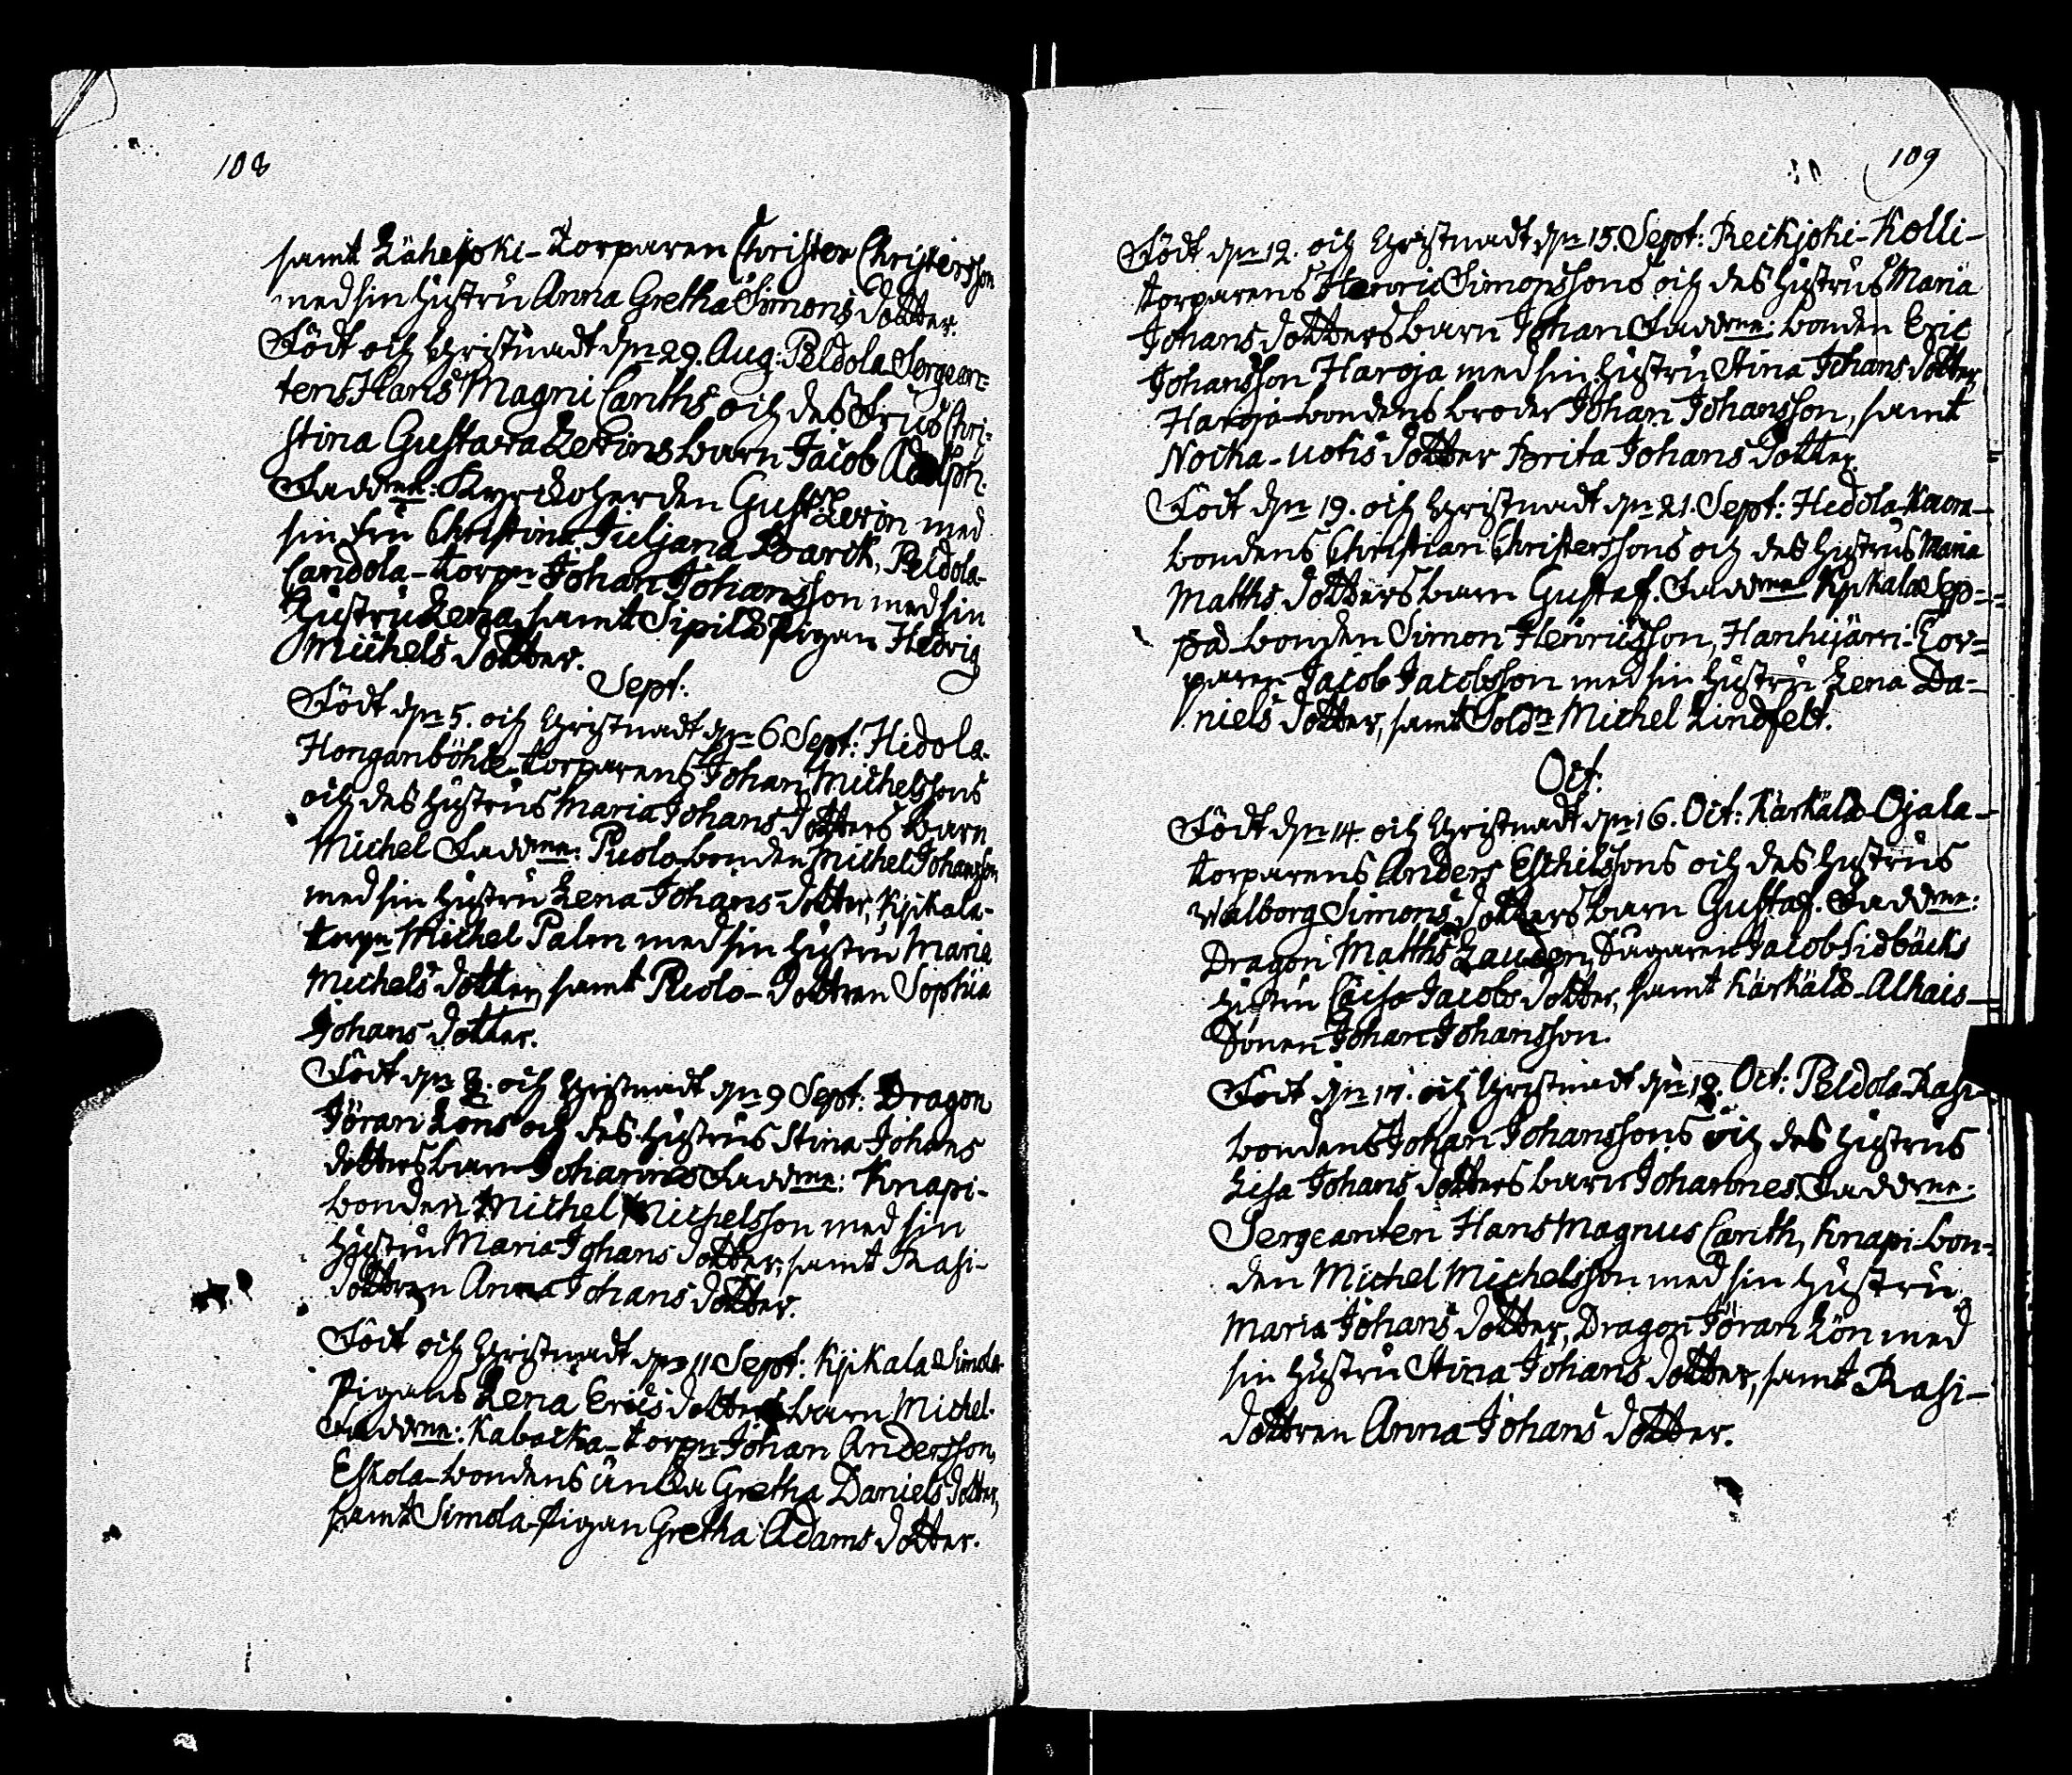 108
samt Lähejoki-torparen Christer Christersson
med sin hustru Anna Gretha Simons dotter.
Född och Christnadt dn 29. Aug: Peldola Sergean-
tens Hans Magni Canths och des Frus Chri-
stina Gustava Lerins barn Jacob Adolph.
Faddrne: Kyrckoherden Gust: Lerin med
sin fru Christina Juljana Barck, Peldola-
Candola-torpn Johan Johansson med sin
hustru Lena, samt Sipilä pigan Hedvig
Michels dotter.
Sept:
Född dn 5. och Christnadt dn 6. Sept: Hidola-
Honganböhle-torparens Johan Michelssons
och des hustrus Maria Johans dotters barn
Michel Faddrne: Puolo-bonden Michel Johansson
med sin hustru Lena Johans-dotter, Kyikala-
torpn Michel Palm med sin hustru Maria
Michels dotter, samt Puolo-dottren Sophia
Johans dotter.
Född dn 8. och Christnadt dn 9 Sept: Dragon
Jöran Löns och des hustrus Stina Johans
dotters barn Johannes Faddrne: Knapi-
bonden Michel Michelsson med sin
hustru Maria Johans dotter, samt Rasi-
dottren Anna Johans dotter.
Född och Christnadt dn 11 Sept: Kyikala Simola-
pigans Lena Erics dotters barn Michel.
Faddrne: Kabacka-torpn Johan Andersson,
Eskola-bondens änka Gretha Daniels dotter,
samt Simola-pigan Gretha Adams dotter.
109
Född dn 12. och Christnadt dn 15. Sept: Reikjoki-Kolli-
torparens Henric Simonssons och des hustrus Maria
Johans dotters barn Johan Faddrne: bonden Eric
Johansson Haroja med sin hustru Stina Johans dotter,
Haroja-bondens broder Johan Johansson, samt
Nocka-uotis dotter Brita Johans dotter.
Född dn 19. och Christnadt dn 21. Sept: Hidola-
bondens Christian Christerssons och des hustrus Maria
Matths dotters barn Gustaf. Faddrne Kyikala Sep-
pä-bonden Simon Henricsson, Hanhijärvi-Tor-
paren Jacob Jacobsson med sin hustru Lena Da-
niels dotter, samt Soldn Michel Lindfelt.
Oct:
Född dn 14. och Christnadt dn 16. Oct: Karkälä-Ojala-
torparens Anders Eschilssons och des hustrus
Walborg Simons dotters barn Gustaf. Faddrne:
Dragon Matths Lauden, Sågaren Jacob Sidbäcks
hustru Caisa Jacobs dotter, samt Kärkälä-Alhais-
Sonen Johan Johansson.
Född dn 17. och Christnadt dn 18. Oct: Peldola Rasi-
bondens Johan Johanssons och des hustrus
Lisa Johans dotters barn Johannes Faddrne:
Sergeanten Hans Magnus Canth, Knapi-bon-
den Michel Michelsson med sin hustru
Maria Johans dotter, Dragon Jöran Lön med
sin hustru Stina Johans dotter, samt Rasi-
dottren Anna Johans dotter.